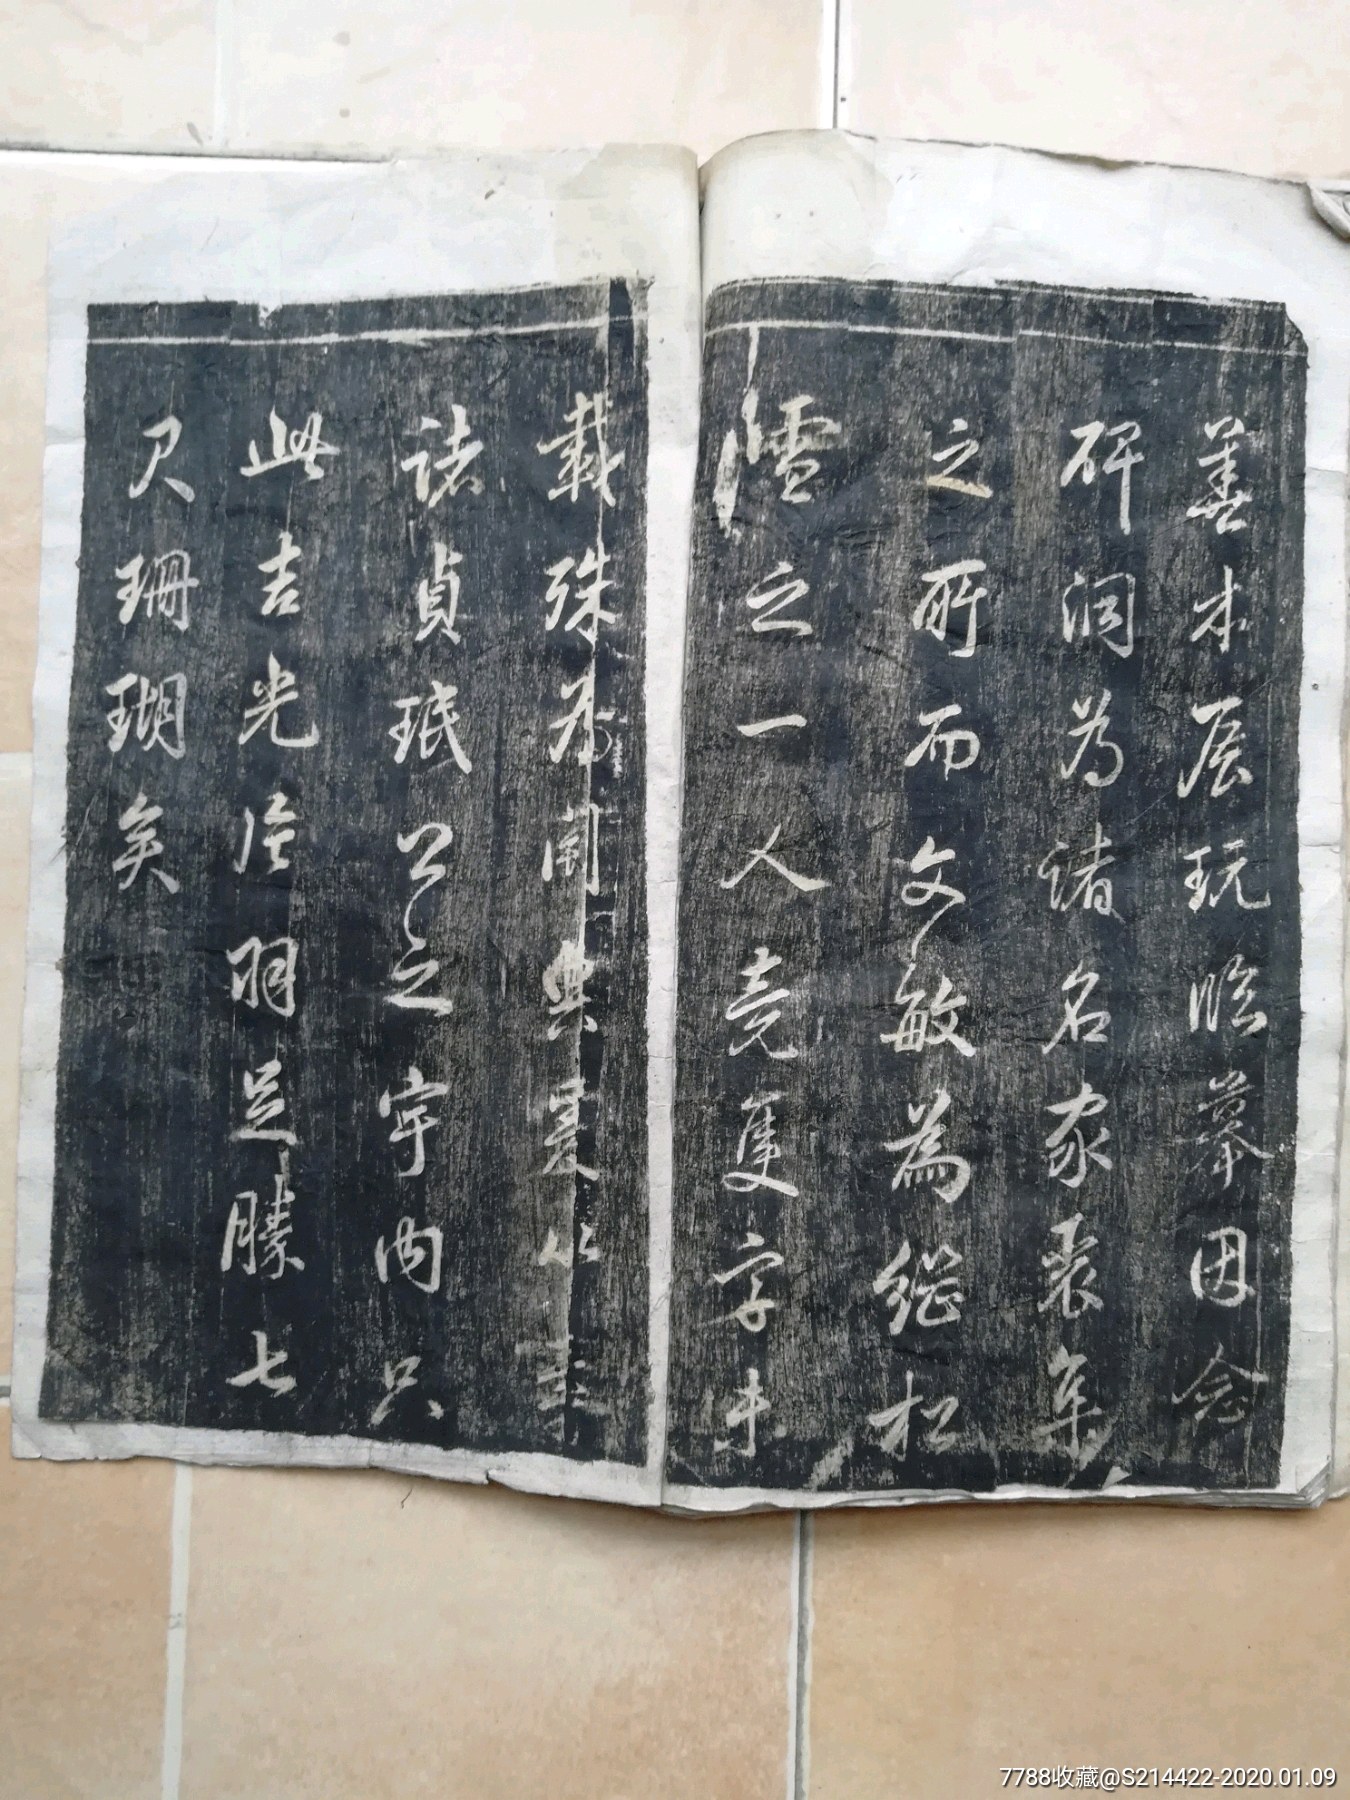 善本展玩臨摹因念
碑洞為諸名家裒集
之所而文敏為繼松
雪之一人竟隻字未
載殊為闕典爰
諸貞珉公之宇內只
此吉光片羽足勝七
尺珊瑚矣
7788收藏@S214422-2020.01.09